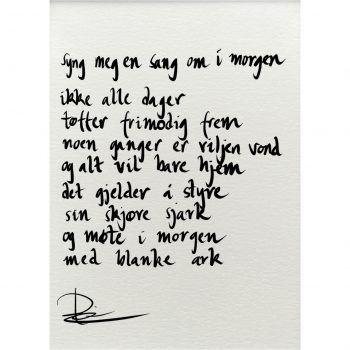 syng meg en sang om i morgen
ikke alle dager
tøffer frimodig frem
noen ganger er viljen vond
og alt vil bare hjem
det gjelder å styre
sin skjøre sjark
og møte i morgen
med blanke ark